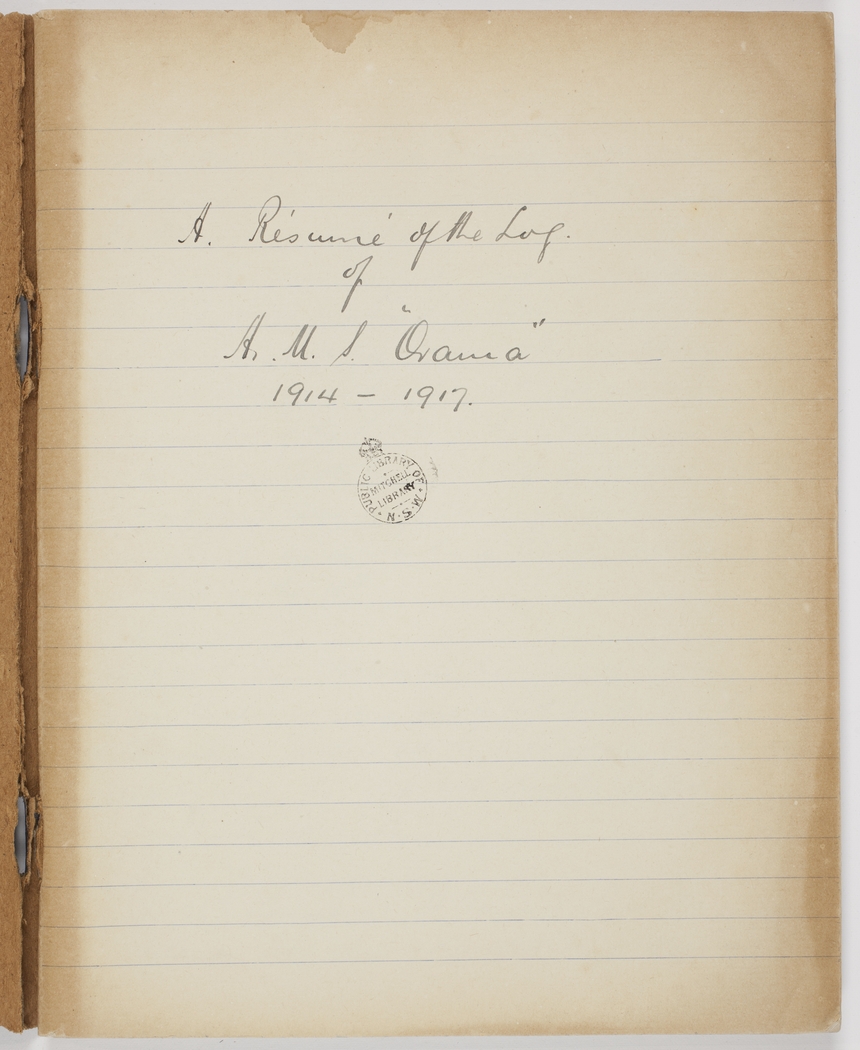 A. Résumé of the Log.
of
H. M. S. "Orama"
1914 – 1917.
PUBLIC LIBRARY OF N.S.W.
MITCHELL
LIBRARY